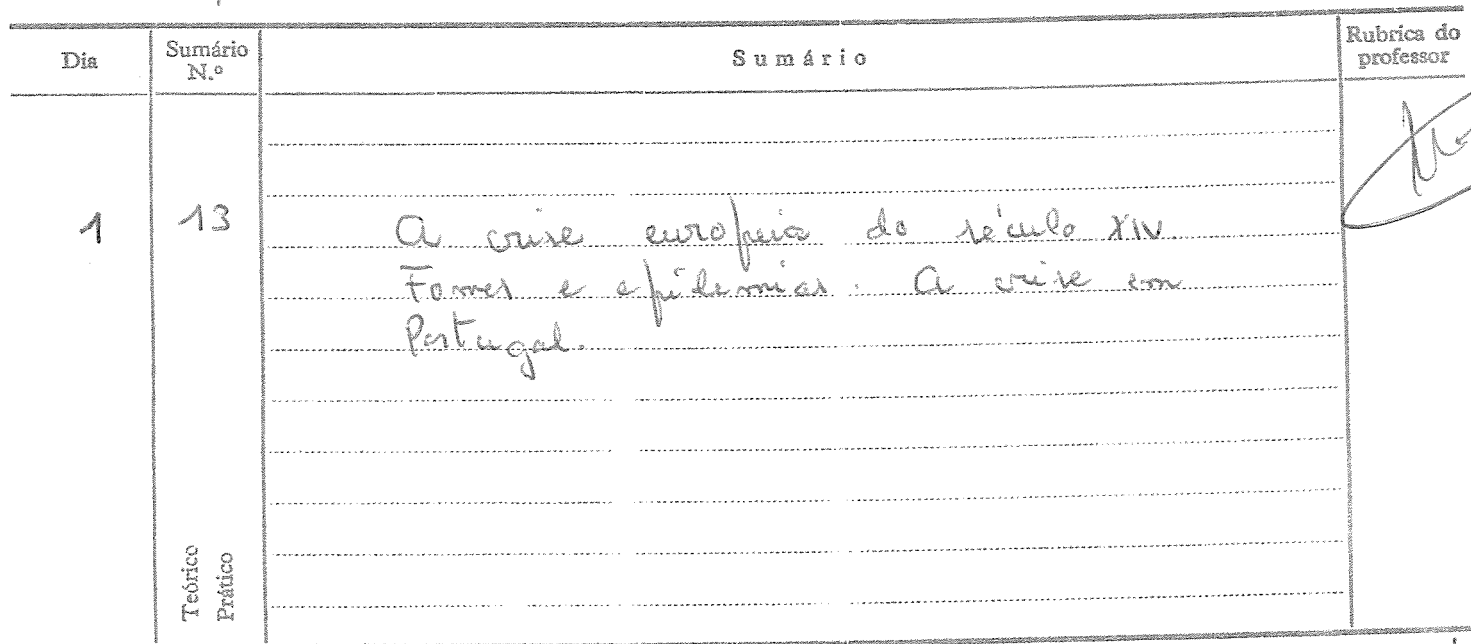 Dia
Sumário
N.º
Sumário
Rubrica do
professor
1
13
A crise europeia do século XIV.
Fomes e epidemias. A crise em
Portugal.
Teórico
Prático